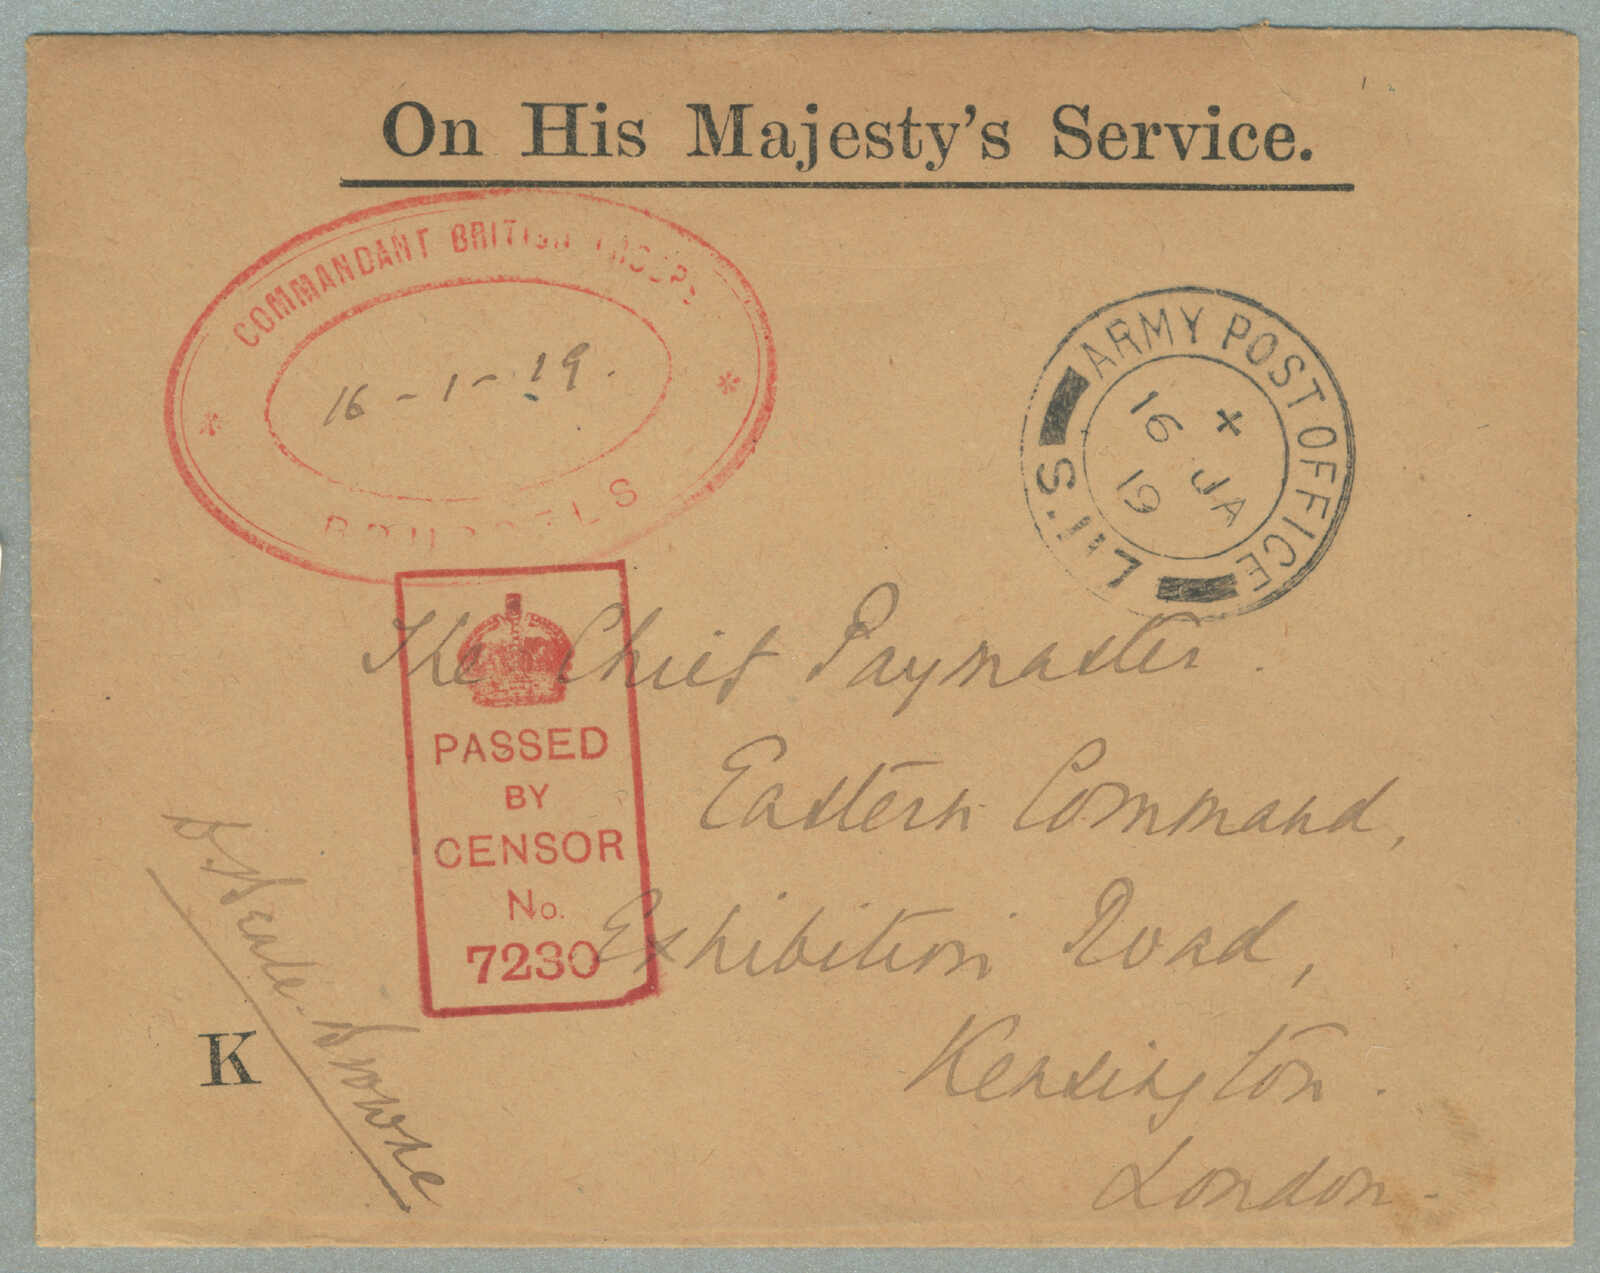 On His Majesty's Service.
COMMANDANT BRITISH TROOPS
16-1-19.
BRUSSELS
ARMY POST OFFICE
S.117
16 JA
19
The Chief Paymaster.
Eastern Command,
Exhibition Road,
Kensington.
London-
PASSED
BY
CENSOR
No.
7230
K